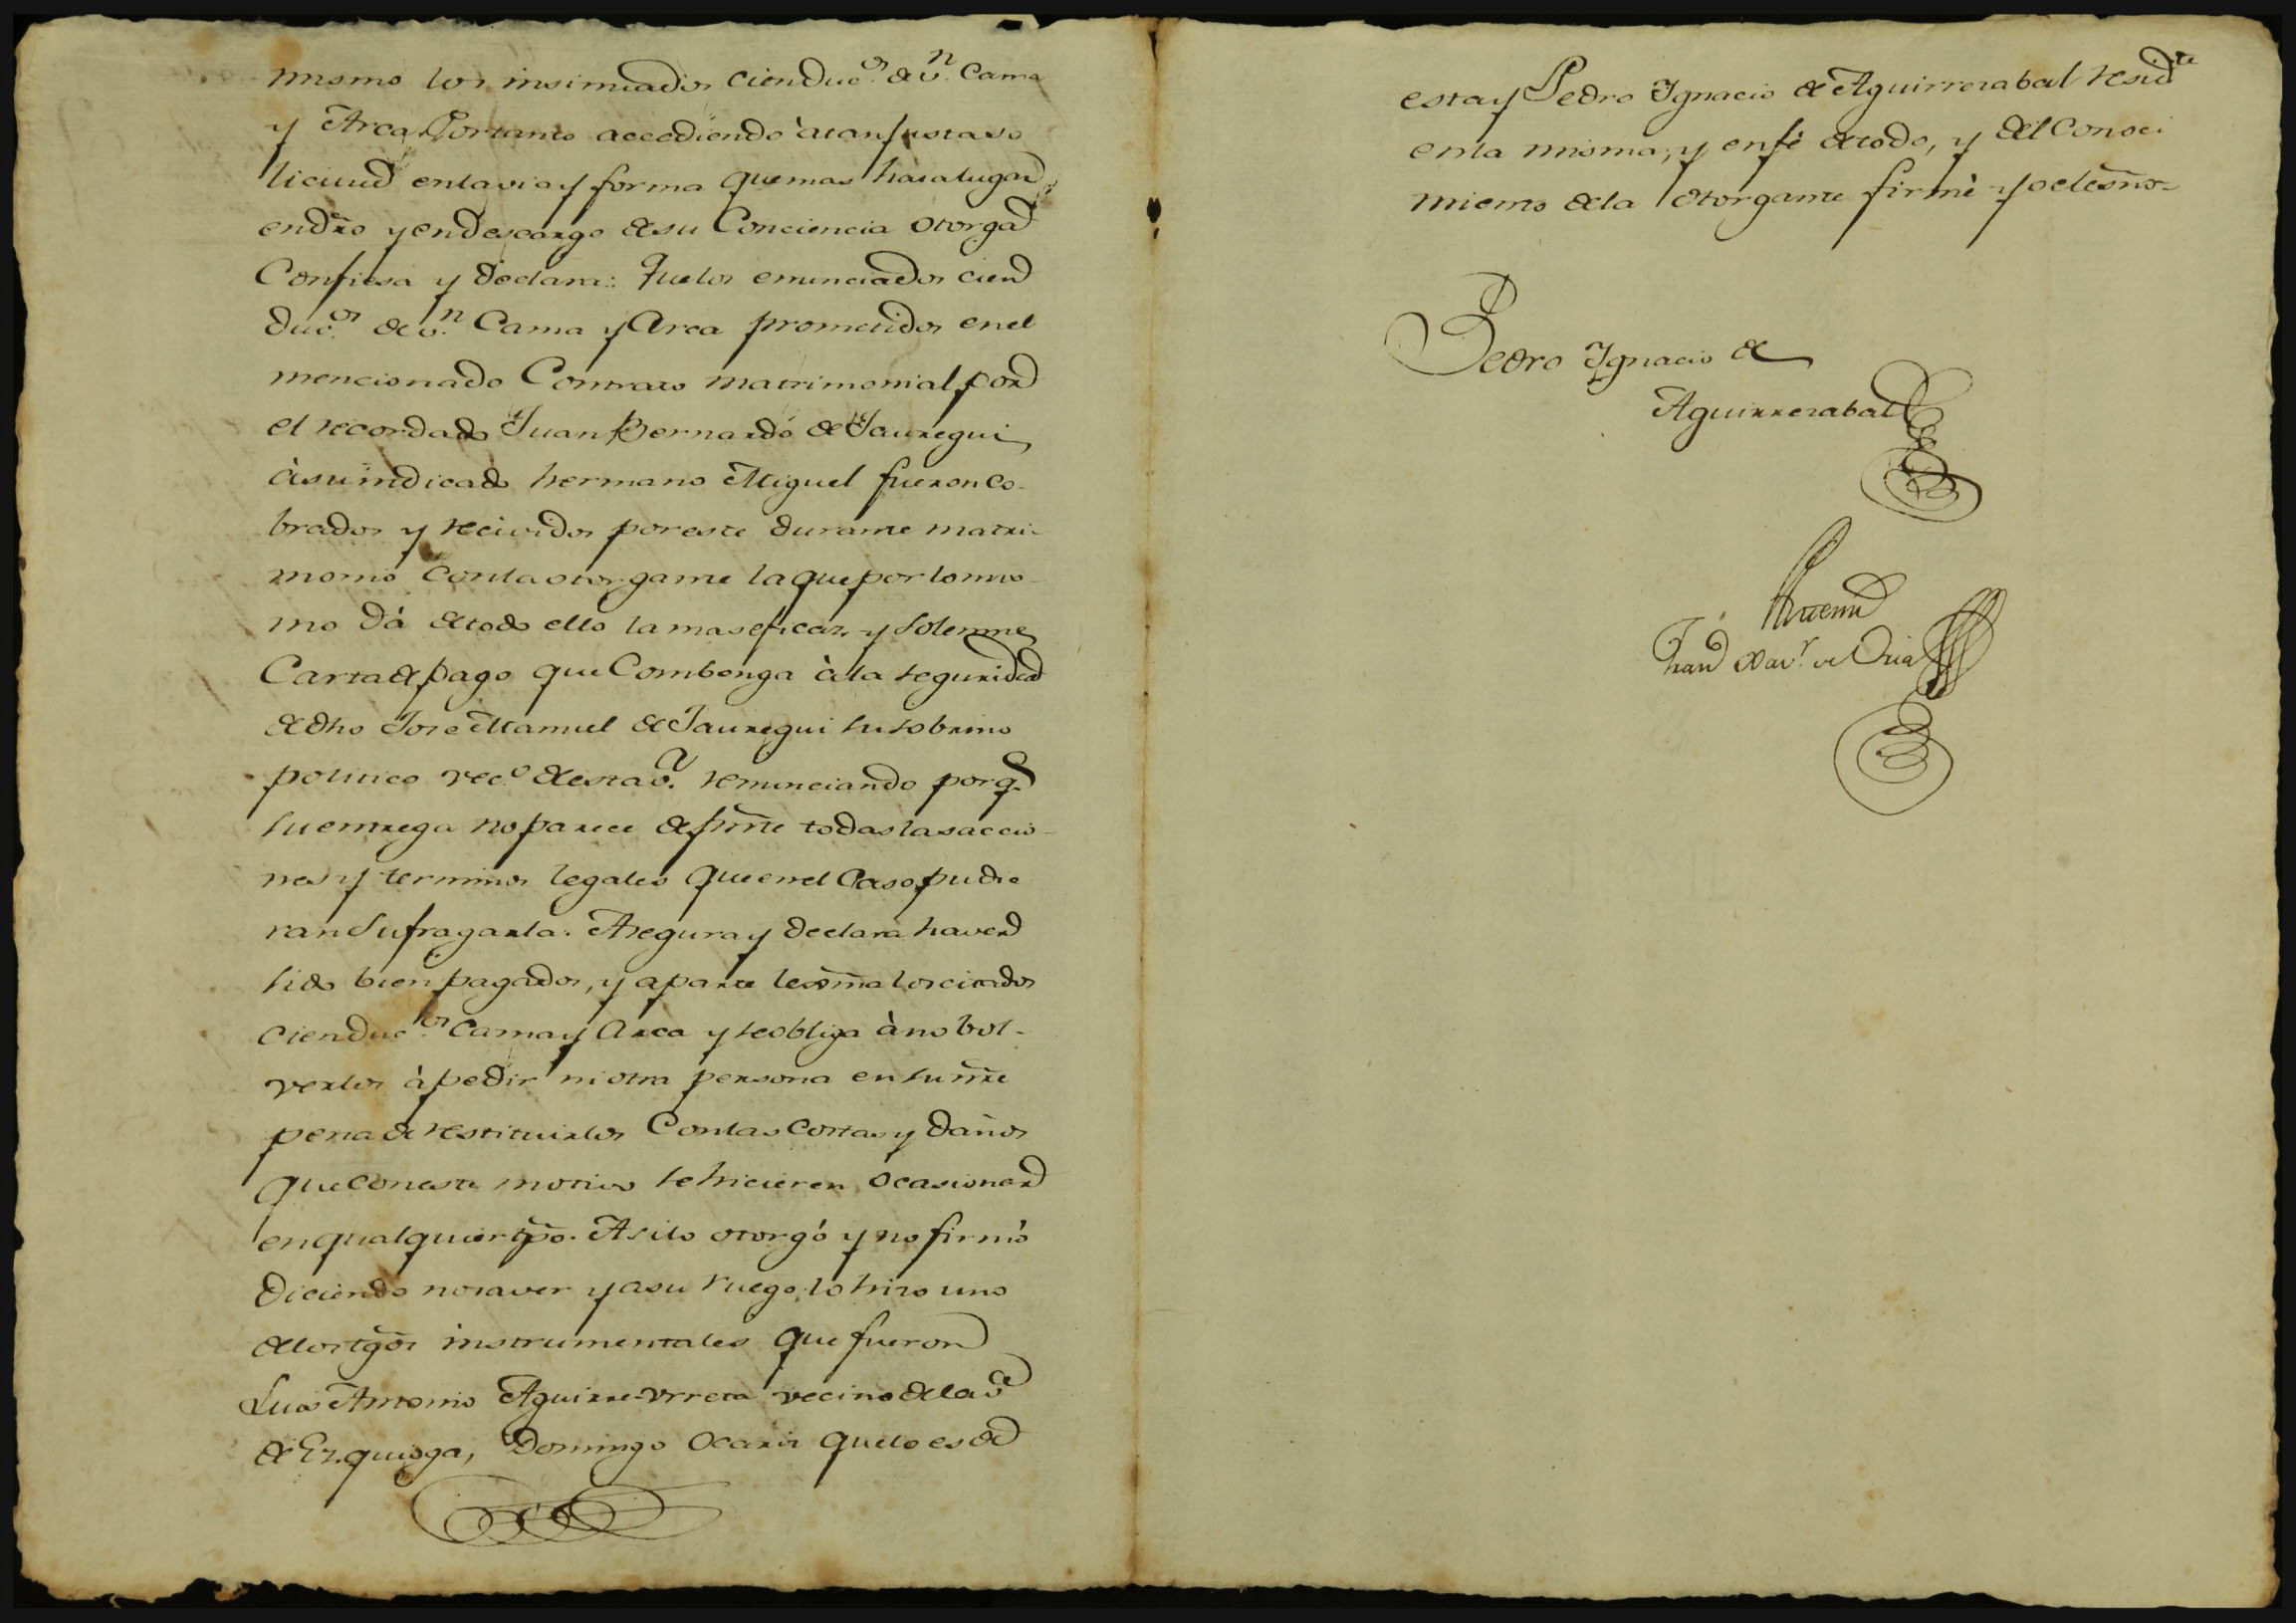 mismo los insinuados cien duc.os de v.n Cama
y Arca. Portanto accediendo à tan justa so
licitud en la via y forma que mas haia lugar
en dro y en descargo de su Conciencia otorga
Confiesa y declara: Que los enunciados cien
duc.os de v.n Cama y Arca prometidos en el
mencionado Contrato matrimonial por
el recordado Juan Bernardo de Jauregui
à su indicado hermano Miguel fueron co-
brados y recividos por este durante matri-
monio con la otorgante la que por lo mis-
mo dá de todo ello la mas eficaz y solemne
Carta de pago que combenga à la seguridad
de dho Jose Manuel de Jauregui su sobrino
politico vec.o de esta v.a renunciando por q.e
su entrega no parece de pnte todas las accio-
nes y terminos legales que en el Caso pudie
ran sufragarla. Asegura y declara haver
sido bien pagados, y a parte lexma los citados
cien duc.os Cama y Arca y se obliga à no bol-
verlos à pedir ni otra persona en su nre
pena de restituirlos Con las Costas y daños
que con este motivo se hicieren ocasionar
en qualquier tpo. Asi lo otorgó y no firmó
diciendo no saver y a su ruego lo hizo uno
de los tgos instrumentales que fueron
Luis Antonio Aguirre-Urreta vecino de la v.a
de Ezquioga, Domingo Ocariz que lo es de
esta y Pedro Ignacio de Aguirrezabal resid.te
en la misma, y en fé de todo, y del Conoci
miento de la otorgante firmé yo el esno-
Pedro Ignacio de
Aguirrezabal
Ante mi
Fran Xav.r de Oria